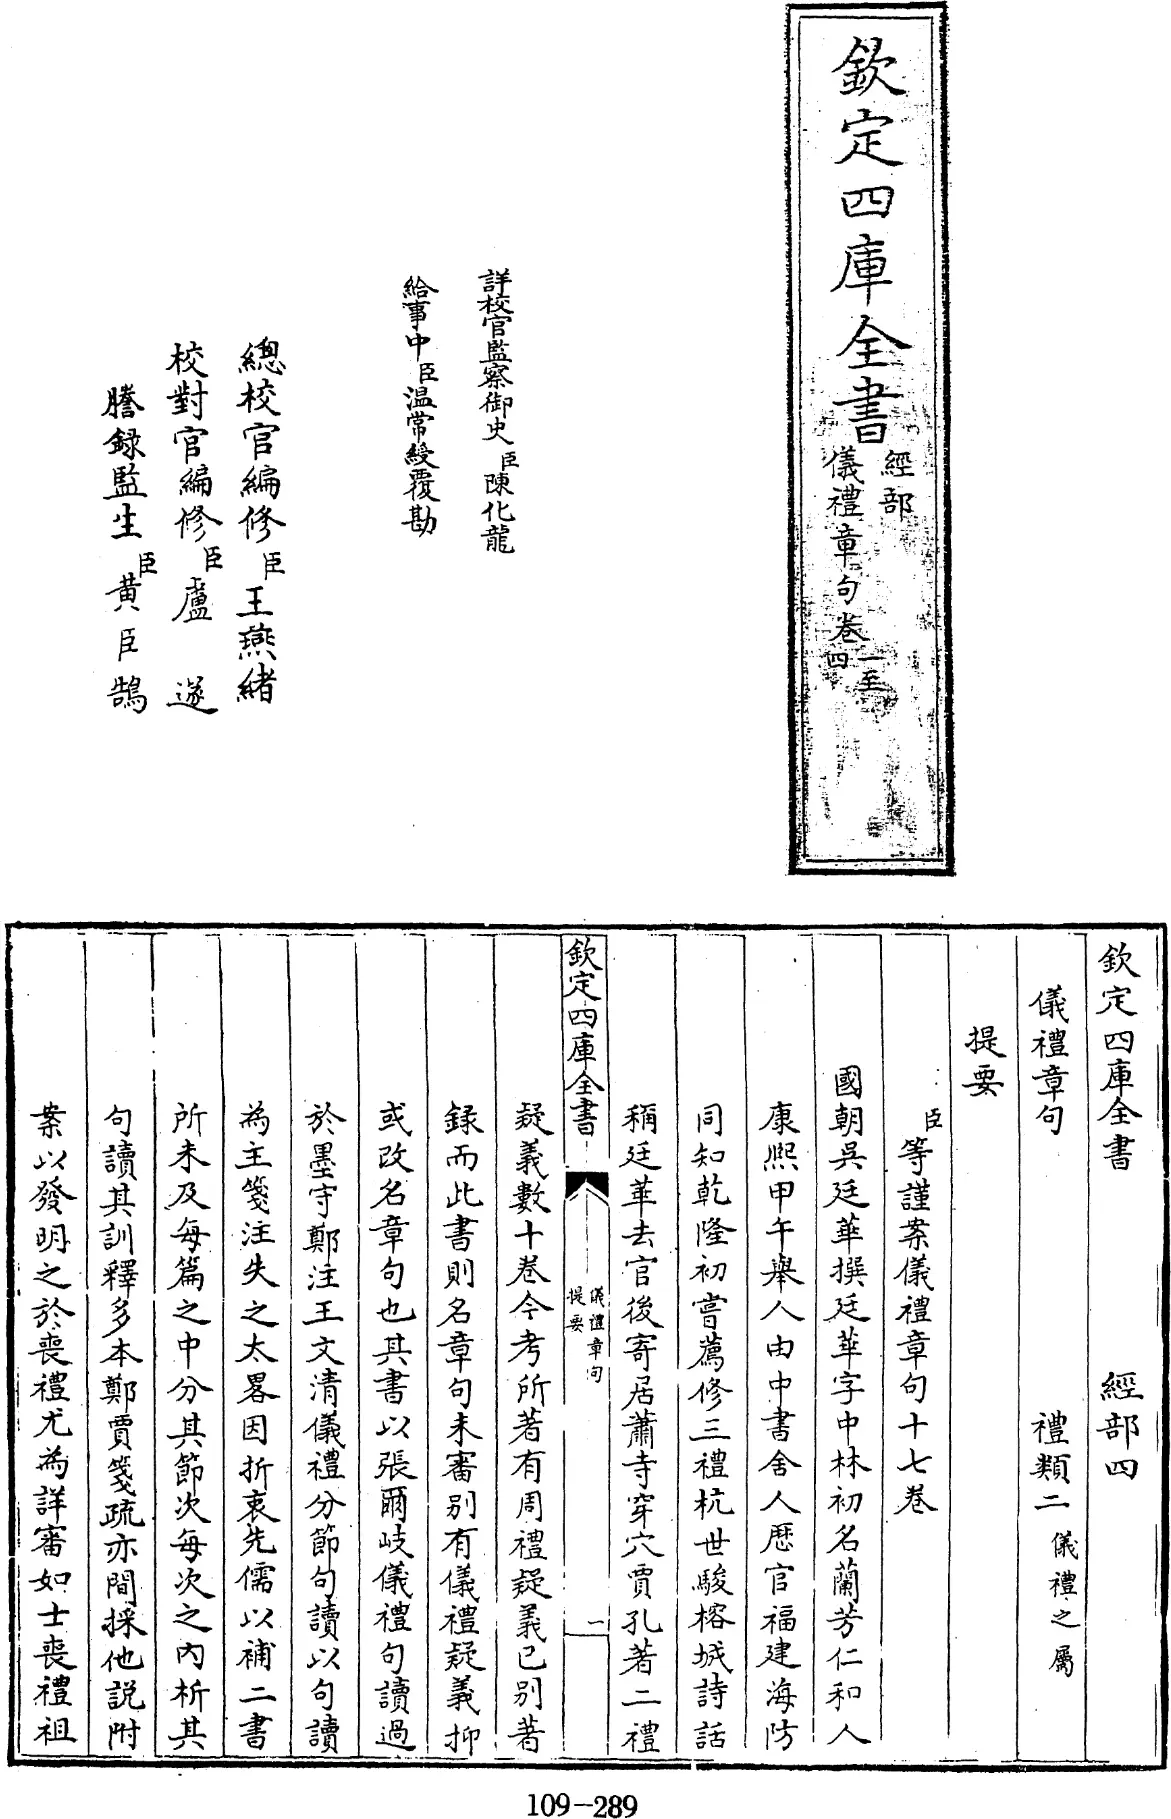 欽定四庫全書
經部
儀禮章句卷一至四
詳校官監察御史臣陳化龍
給事中臣温常綬覆勘
總校官編修臣王燕緒
校對官編修臣盧遂
謄錄監生臣黄臣鵠
欽定四庫全書 經部四
儀禮章句 禮類二儀禮之屬
提要
臣等謹案儀禮章句十七卷
國朝吳廷華撰廷華字中林初名蘭芳仁和人
康熙甲午舉人由中書舍人歴官福建海防
同知乾隆初嘗薦修三禮杭世駿榕城詩話
稱廷華去官後寄居蕭寺穿穴賈孔著二禮
欽定四庫全書 儀禮章句提要 一
疑義數十卷今考所著有周禮疑義已别著
録而此書則名章句未審别有儀禮疑義抑
或改名章句也其書以張爾岐儀禮句讀過
於墨守鄭注王文清儀禮分節句讀以句讀
為主箋注失之太畧因折衷先儒以補二書
所未及每篇之中分其節次每次之内析其
句讀其訓釋多本鄭賈箋疏亦間採他説附
案以發明之於喪禮尤為詳審如士喪禮祖
109-289